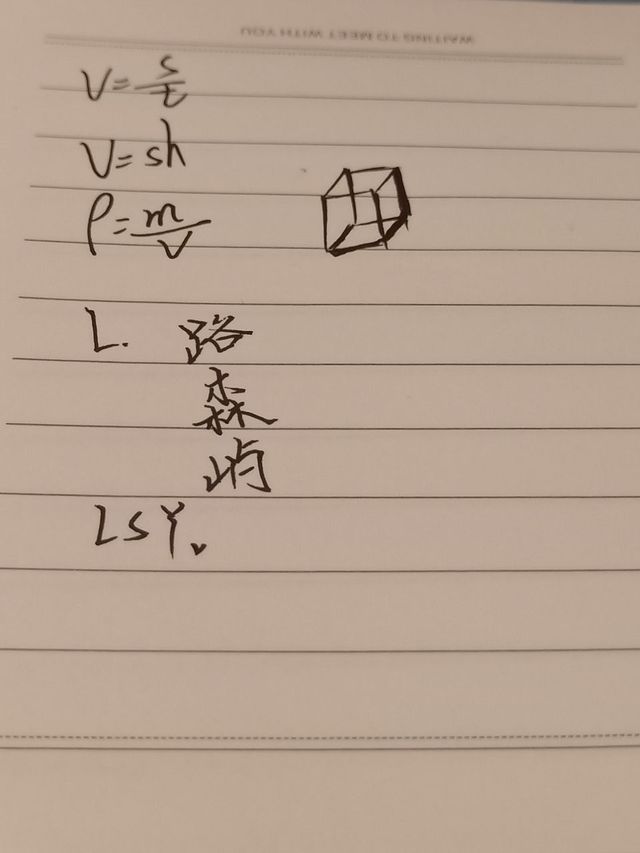 WAITING TO MEET WITH YOU
V=s/t
V=sh
ρ=m/V
L. 路
森
屿
LSY.